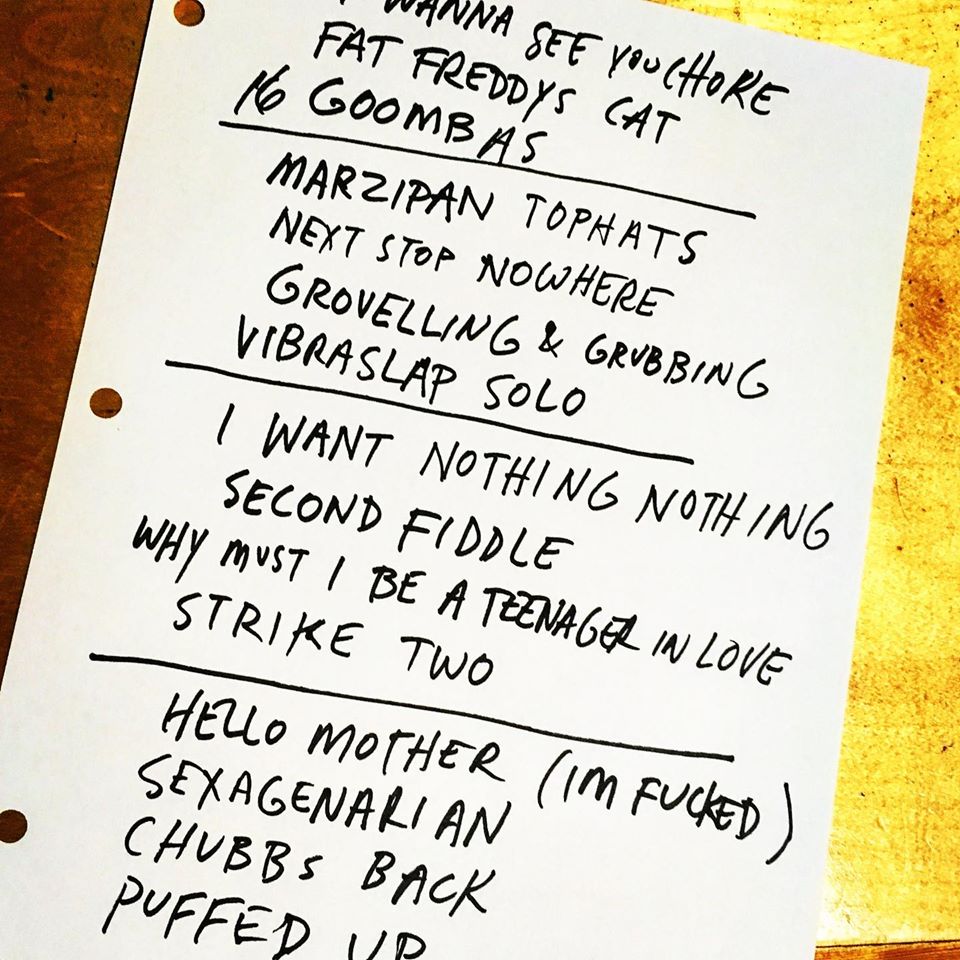 I WANNA SEE YOU CHOKE
FAT FREDDYS CAT
16 GOOMBAS
MARZIPAN TOPHATS
NEXT STOP NOWHERE
GROVELLING & GRUBBING
VIBRASLAP SOLO
I WANT NOTHING NOTHING
SECOND FIDDLE
WHY MUST I BE A TEENAGER IN LOVE
STRIKE TWO
HELLO MOTHER (IM FUCKED)
SEXAGENARIAN
CHUBBS BACK
PUFFED UP